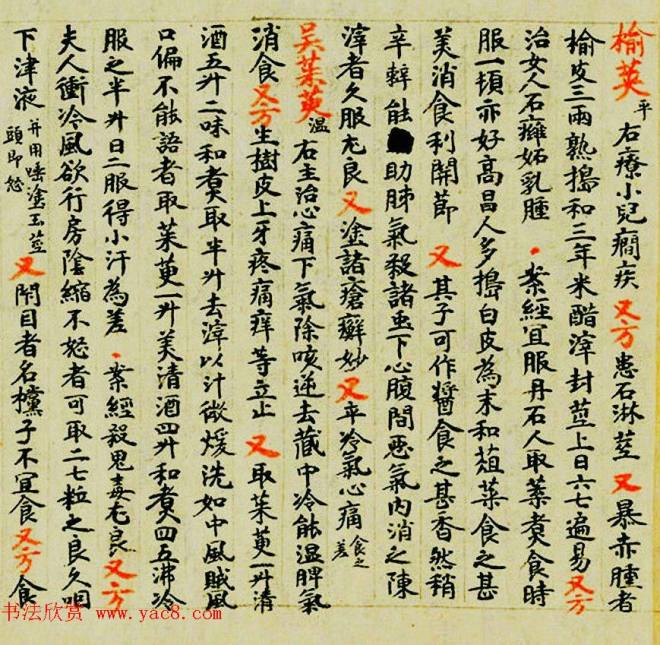 榆荚平 右療小兒癇疾 又方患石淋莖 又暴赤腫者
榆皮三兩熟搗和三年米醋滓封莖上日六七遍易又方
治女人石癰妬乳腫 · 案經宜服丹石人取葉煮食時
服一頓亦好高昌人多搗白皮為末和菹菜食之甚
美消食利關節 又 其子可作醬食之甚香然稍
辛辣能助肺氣殺諸虫下心腹間惡氣內消之陳
滓者久服尤良 又 塗諸瘡癬妙 又 卒冷氣心痛食之差
吴茱萸温 右主治心痛下氣除咳逆去藏中冷能温脾氣
消食又方生樹皮上牙疼痛痒等立止 又 取茱萸一升清
酒五升二味和煮取半升去滓以汁微煖洗如中風賊風
口偏不能語者取茱萸一升美清酒四升和煮四五沸冷
服之半升日二服得小汗為差 · 案經殺鬼毒尤良又方
夫人衝冷風欲行房陰縮不怒者可取二七粒之良久咽
下津液并用唾塗玉莖頭即怒 又 閉目者名欓子不宜食又方食
书法欣赏 www.yac8.com